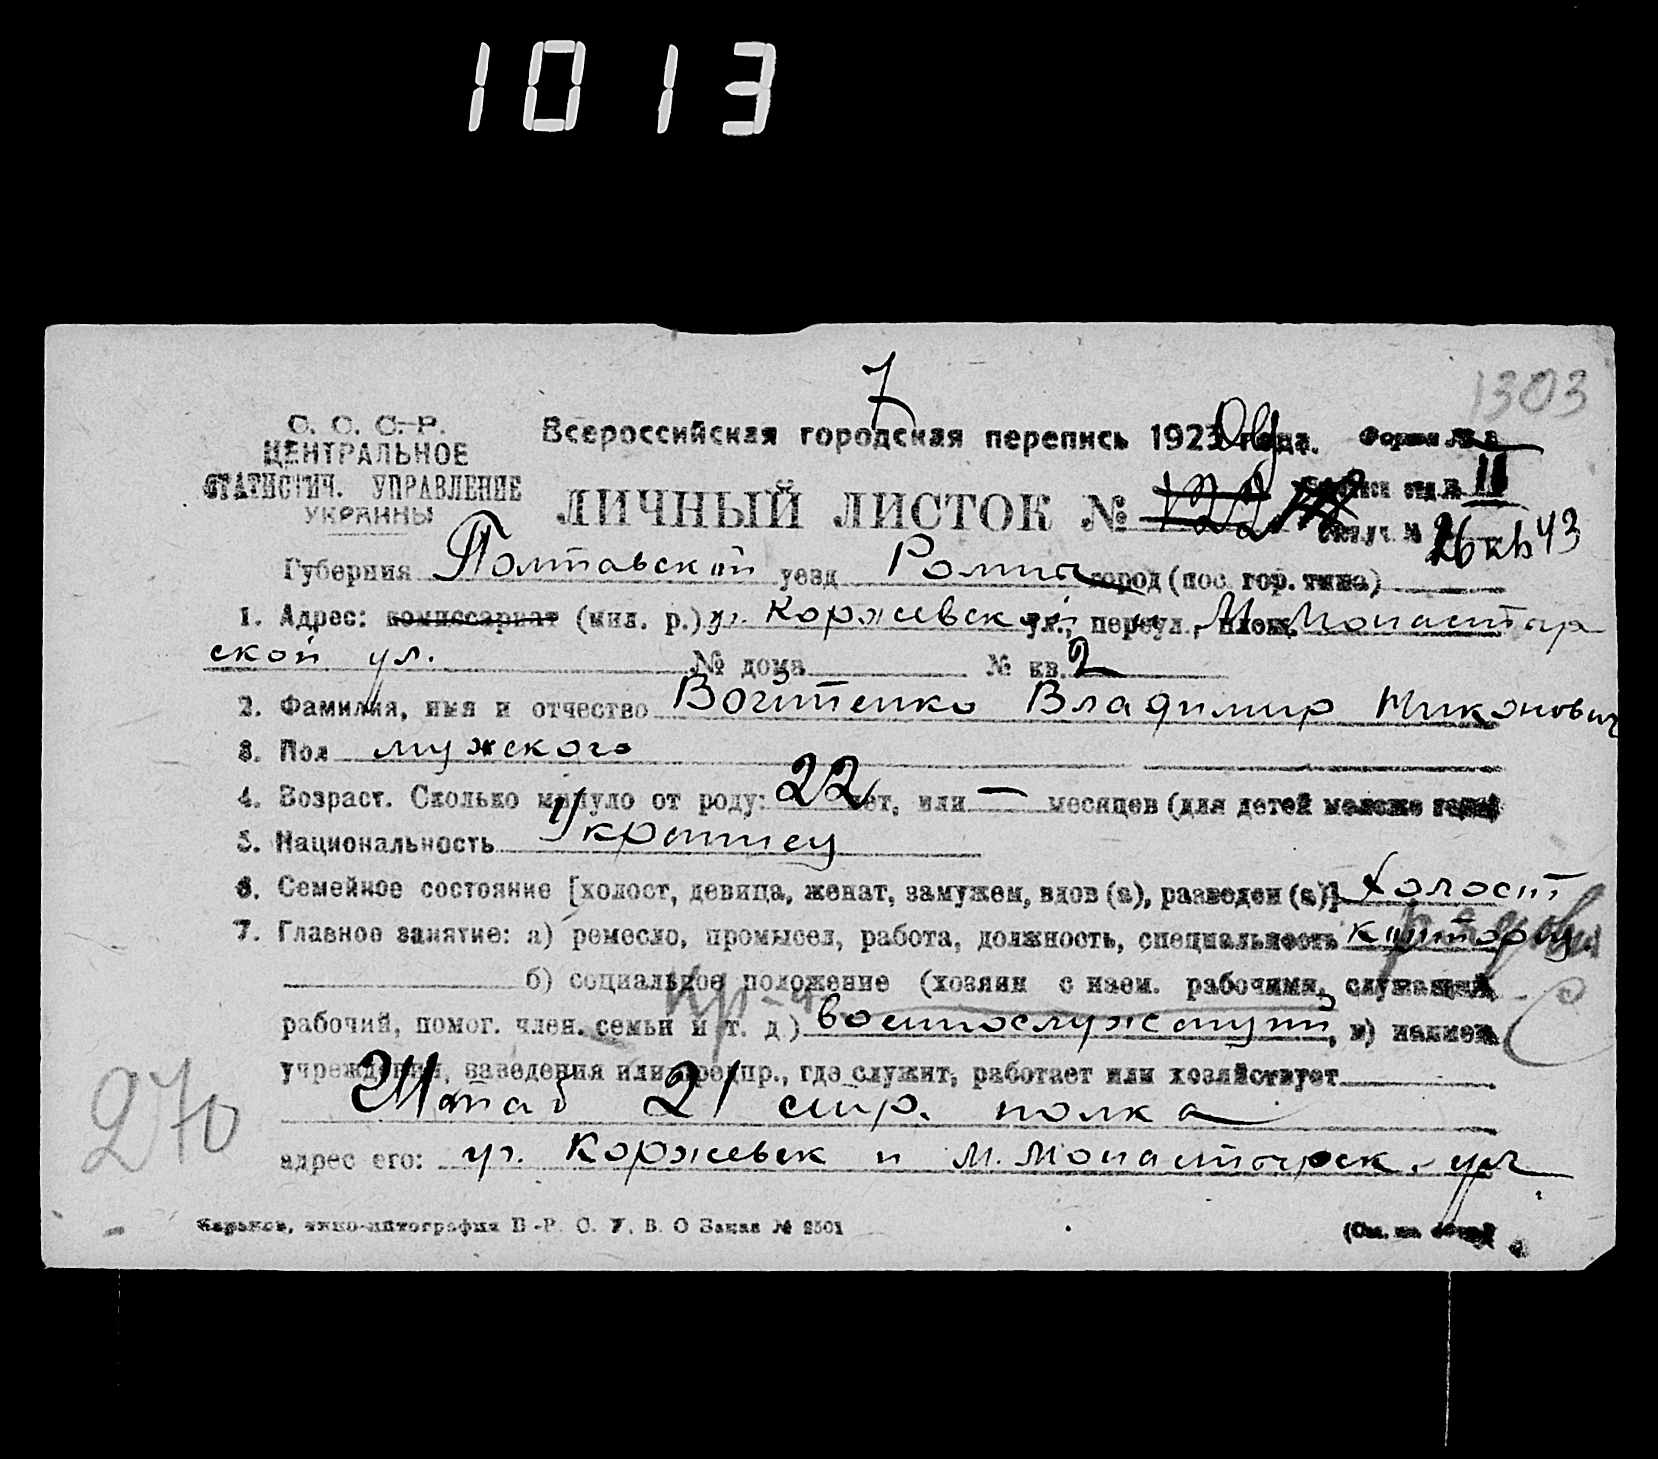 1013
7
1303
С. С. С. Р.
ЦЕНТРАЛЬНОЕ
СТАТИСТИЧ. УПРАВЛЕНИЕ
УКРАИНЫ
Всероссийская городская перепись 1923 года. Форма №
ЛИЧНЫЙ ЛИСТОК № 122 II
26 кв 43
Губерния Полтавской уезд Ромны город (пос. гор. типа)
1. Адрес: комиссариат (мил. р.) уг. Коржевской ул., переул., площ. и М. Монастыр
ской ул. № дома № кв. 2
2. Фамилия, имя и отчество Войтенко Владимир Никонович
3. Пол мужского
4. Возраст. Сколько минуло от роду: 22 лет, или — месяцев (для детей моложе года)
5. Национальность Украинец
6. Семейное состояние [холост, девица, женат, замужем, вдов (а), разведен (а)] Холост
7. Главное занятие: а) ремесло, промысел, работа, должность, специальность
б) социальное положение (хозяин с наем. рабочими, служащий
рабочий, помог. член. семьи и т. д.) военнослужащий, в) наимен.
учреждения, заведения или предпр., где служит, работает или хозяйствует
Штаб 21 стр. полка
270
адрес его: уг. Коржевск и М. Монастырск. ул
Харьков, типо-литография В. О Заказ № 2501
(См. на обор.)